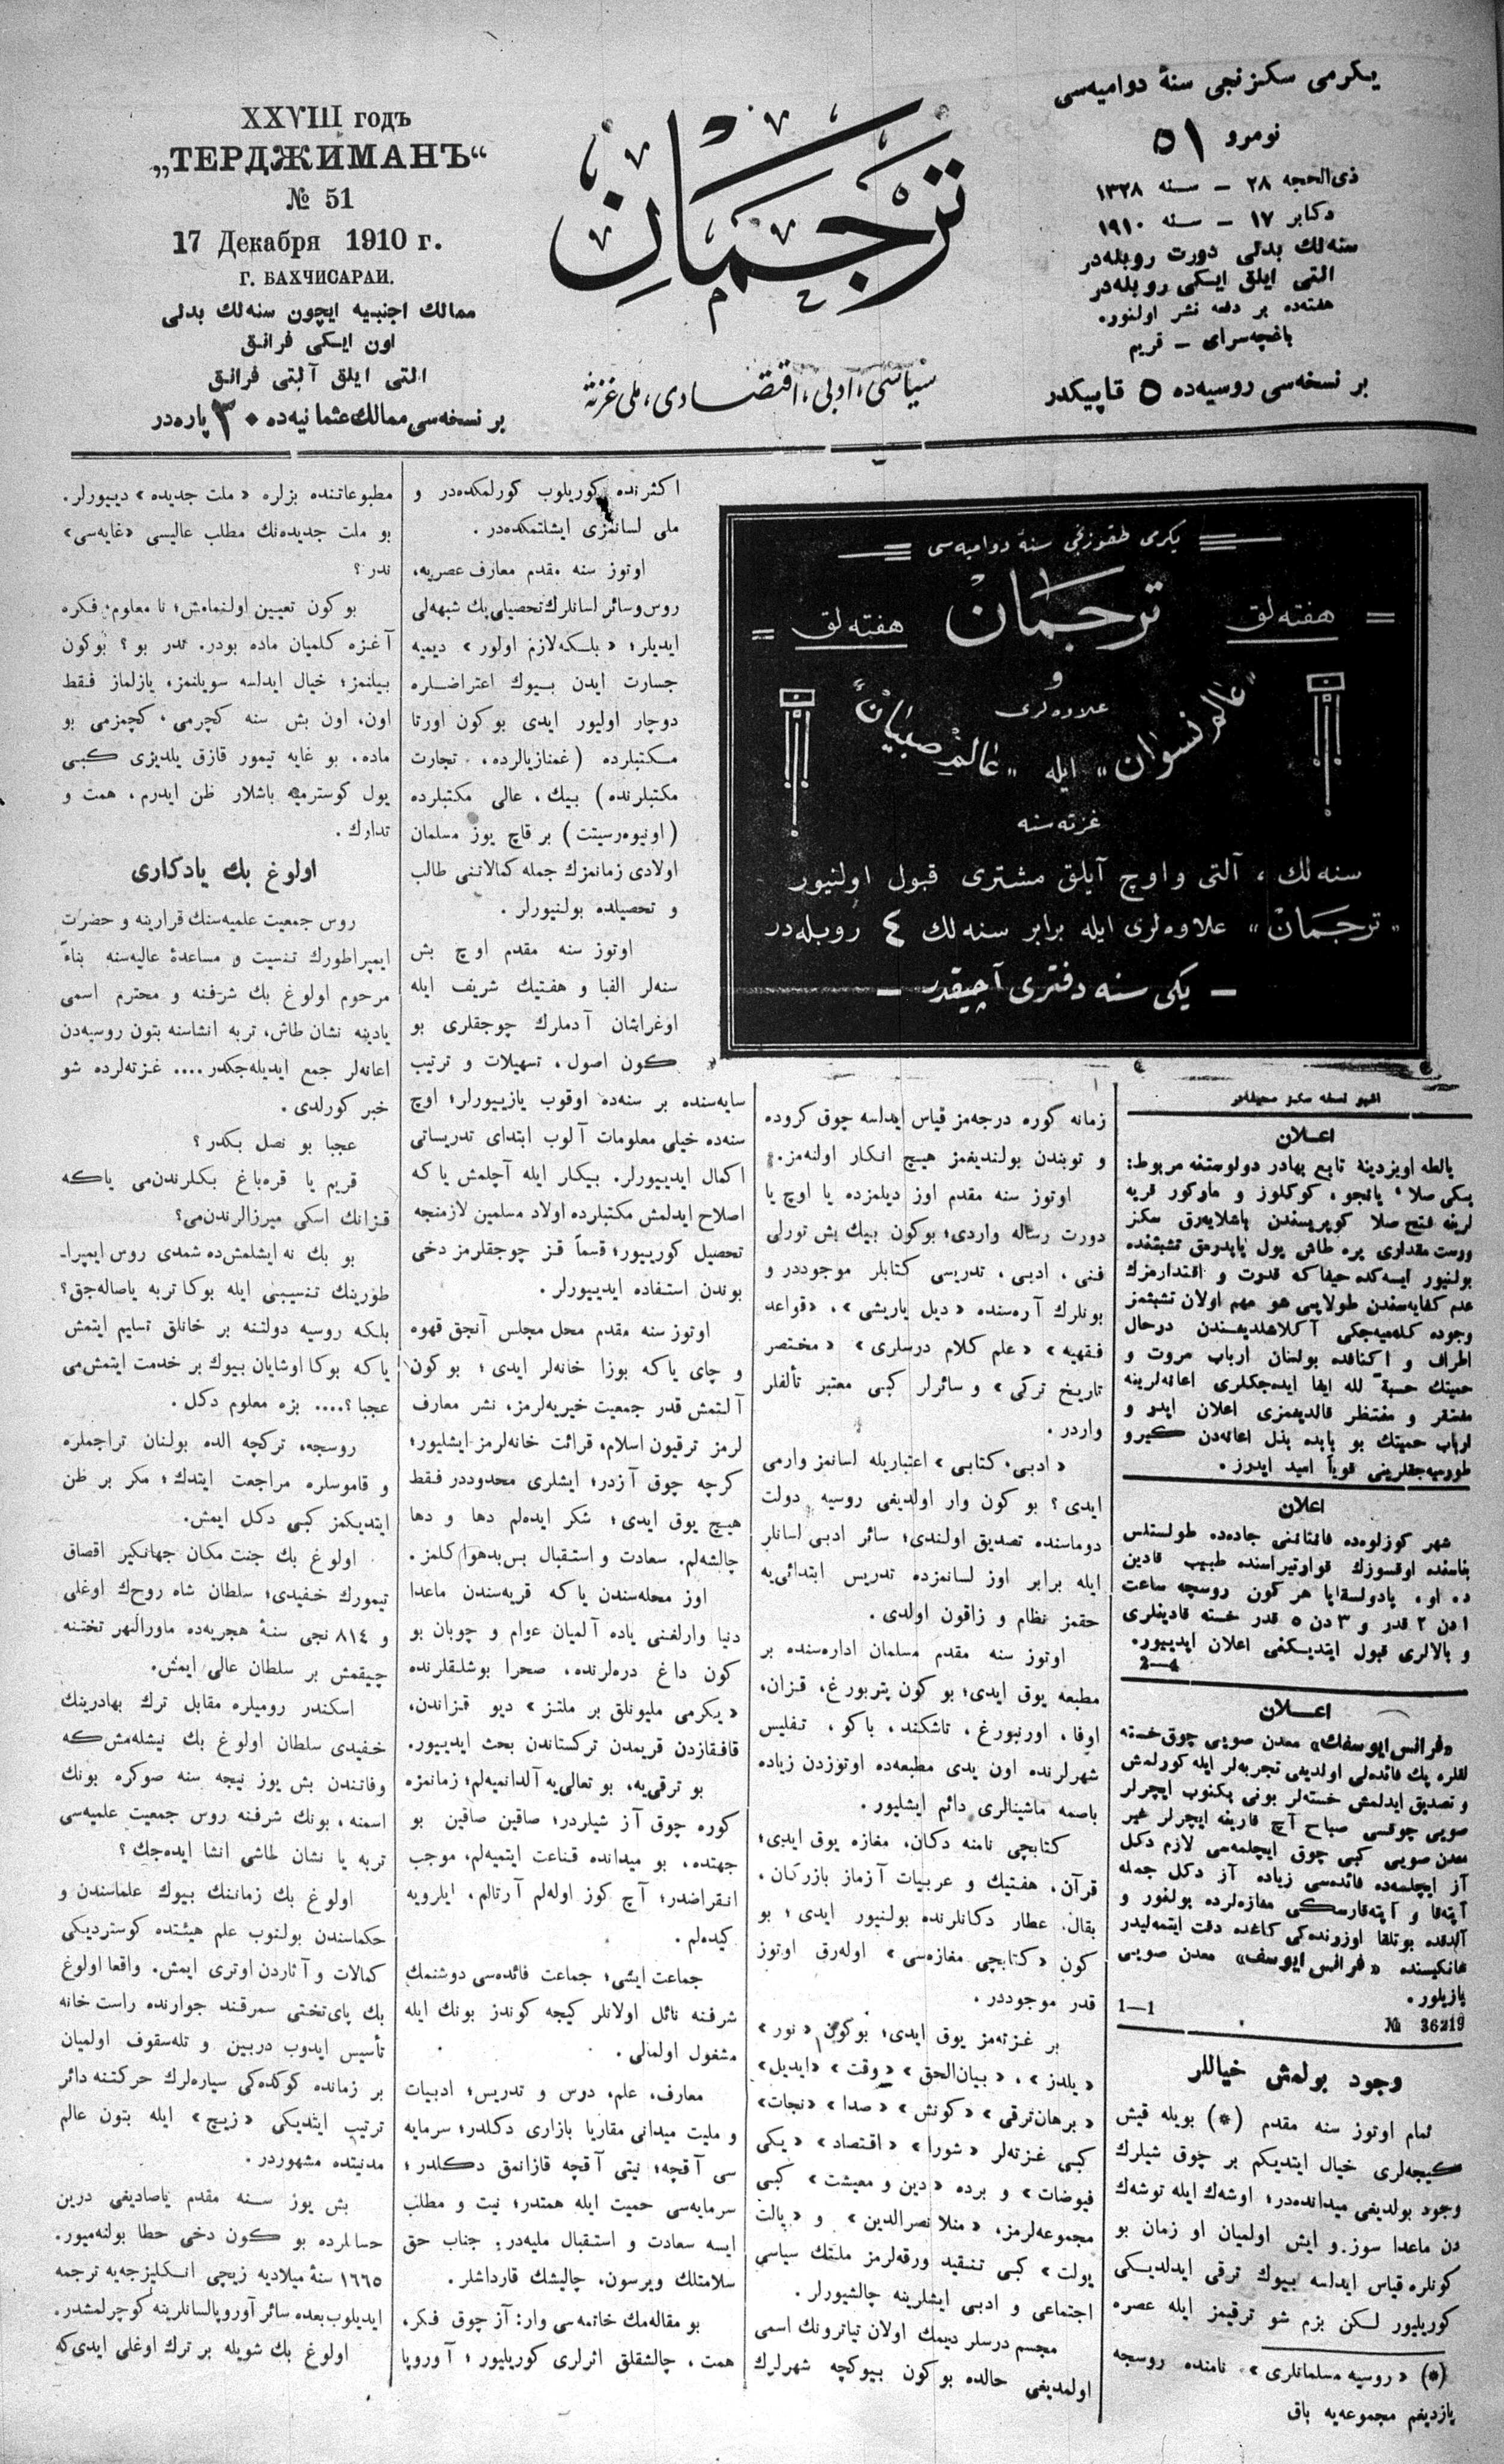 يكرمى سكزنجى سنۀ دواميه‌سى
نومرو ٥١
ذى‌الحجه ٢٨ – سنه ١٣٢٨
دكابر ١٧ – سنه ١٩١٠
سنه‌لك بدلى دورت روبله‌در
التى ايلق ايكى روبله‌در
هفته‌ده بر دفعه نشر اولنور.
باغچه‌سراى – قريم
بر نسخه‌سى روسيه‌ده ٥ قاپيكدر
ترجمان
سياسى، ادبى، اقتصادى، ملى غزته
XXVIII годъ
„ТЕРДЖИМАНЪ“
№ 51
17 Декабря 1910 г.
Г. БАХЧИСАРАИ.
ممالك اجنبيه ايچون سنه‌لك بدلى
اون ايكى فرانق
التى ايلق آلتى فرانق
بر نسخه‌سى ممالك عثمانيه‌ده ٣٠ پاره‌در
يكرمى طقوزنجى سنۀ دواميه‌سى
هفته‌لق ترجمان هفته‌لق
و
علاوه‌لرى
„عالم نسوان“ ايله „عالم صبيان“
غزته‌سنه
سنه‌لك، آلتى و اوچ آيلق مشترى قبول اولنيور
„ترجمان“ علاوه‌لرى ايله برابر سنه‌لك ٤ روبله‌در
– يكى سنه دفترى آچيقدر –
اشبو نسخه سكز صحيفه‌در
اعلان
يالطه اويزدينۀ تابع بهادر دولوستنه مربوط:
وجوده كله‌ميه‌جكى آكلاشلديغندن درحال
اطراف و اكنافده بولنان ارباب مروت و
حميتك حسبة لله ايفا ايده‌جكلرى اعانه‌لرينه
مفتقر و منتظر قالديغمزى اعلان ايدر و
ارباب حميتك بو بابده بذل اعانه‌دن كيرو
طورميه‌جقلرينى قوياً اميد ايدرز.
اعلان
شهر كوزلوه‌ده فانتاننى جاده‌ده طولستلس
بناسنده اوقسوزك قوارتيراسنده طبيب قادين
١ دن ٢ قدر و ٣ دن ٥ قدر خسته قادينلرى
و بالالرى قبول ايتديكنى اعلان ايدييور.
2—4
اعلان
«فرانس ايوسفك» معدن صويى چوق خسته
لقلره پك فائده‌لى اولديغى تجربه‌لر ايله كورلمش
و تصديق ايدلمش خسته‌لر بونى بكنوب ايچرلر
صويى چوقسى صباح آچ قارينه ايچرلر غير
معدن صويى كبى چوق ايچلمه‌سى لازم دكل
آز ايچلمه‌ده فائده‌سى زياده آز دكل جمله
آپته‌قا و آپته‌قارسكى مغازه‌لرده بولنور و
آلدقده بوتلقا اوزرنده‌كى كاغده دقت ايتمه‌ليدر
هانكيسنده «فرانس ايوسف» معدن صويى
يازيلور.
№ 36219 1—1
وجود بولمش خياللر
تمام اوتوز سنه مقدم (*) بويله قيش
كيجه‌لرى خيال ايتديكم بر چوق شيلرك
وجود بولديغى ميدانده‌در؛ اوشه‌ك ايله توشه‌ك
دن ماعدا سوز و ايش اولميان او زمان بو
كونلره قياس ايدلسه بيوك ترقى ايدلديكى
كوريليور لكن بزم شو ترقيمز ايله عصره
(*) «روسيه مسلمانلرى» نامنده روسجه
يازديغم مجموعه‌يه باق
زمانه كوره درجه‌مز قياس ايدلسه چوق كروده
و توبندن بولنديغمز هيچ انكار اولنه‌مز.
اوتوز سنه مقدم اوز ديلمزده يا اوچ يا
دورت رساله واردى؛ بوكون بيك بش تورلى
فنى، ادبى، تدريسى كتابلر موجوددر و
بونلرك آره‌سنده «ديل ياريشى»، «قواعد
فقهيه» «علم كلام درسلرى» «مختصر
تاريخ تركى» و سائرلر كبى معتبر تألفلر
واردر.
«ادبى، كتابى» اعتباريله لسانمز وارمى
ايدى؟ بو كون وار اولديغى روسيه دولت
دوماسنده تصديق اولندى؛ سائر ادبى لسانلر
ايله برابر اوز لسانمزده تدريس ابتدائى‌يه
حقمز نظام و زاقون اولدى.
اوتوز سنه مقدم مسلمان اداره‌سنده بر
مطبعه يوق ايدى؛ بو كون پتربورغ، قزان،
اوفا، اورنبورغ، تاشكند، باكو، تفليس
شهرلرنده اون يدى مطبعه‌ده اوتوزدن زياده
باصمه ماشينالرى دائم ايشليور.
كتابچى نامنه دكان، مغازه يوق ايدى؛
قرآن، هفتيك و عربيات آزماز بازركان،
بقال، عطار دكانلرنده بولنيور ايدى؛ بو
كون «كتابچى مغازه‌سى» اوله‌رق اوتوز
قدر موجوددر.
بر غزته‌مز يوق ايدى؛ بوكون «نور»
«يلدز»، «بيان‌الحق» «وقت» «ايديل»
«برهان ترقى» «كونش» «صدا» «نجات»
كبى غزته‌لر «شورا» «اقتصاد» «يكى
فيوضات» و برده «دين و معيشت» كبى
مجموعه‌لرمز، «منلا نصرالدين» و «يالت
يولت» كبى تنقيد ورقه‌لرمز ملتك سياسى
اجتماعى و ادبى ايشلرينه چالشيورلر.
مجسم درسلر ديمك اولان تياترونك اسمى
اولمديغى حالده بو كون بيوكچه شهرلرك
اكثرنده كوريلوب كورلمكده‌در و
ملى لسانمزى ايشلتمكده‌در.
اوتوز سنه مقدم معارف عصريه،
روس و سائر لسانلرك تحصيلى بك شبهه‌لى
ايديلر؛ «بلكه لازم اولور» ديميه
جسارت ايدن بيوك اعتراضلره
دوچار اوليور ايدى بو كون اورتا
مكتبلرده (غمنازيالرده، تجارت
مكتبلرنده) بيك، عالى مكتبلرده
(اونيوه‌رسيتت) بر قاچ يوز مسلمان
اولادى زمانمزك جمله كمالاتنى طالب
و تحصيلده بولنيورلر.
اوتوز سنه مقدم اوچ بش
سنه‌لر الفبا و هفتيك شريف ايله
اوغراشان آدملرك چوجقلرى بو
كون اصول، تسهيلات و ترتيب
سايه‌سنده بر سنه‌ده اوقوب يازييورلر؛ اوچ
سنه‌ده خيلى معلومات آلوب ابتداى تدريساتى
اكمال ايدييورلر. بيكار ايله آچلمش ياكه
اصلاح ايدلمش مكتبلرده اولاد مسلمين لازمنجه
تحصيل كورييور؛ قسماً قز چوجقلرمز دخى
بوندن استفاده ايدييورلر.
اوتوز سنه مقدم محل مجلس آنجق قهوه
و چاى ياكه بوزا خانه‌لر ايدى؛ بو كون
آلتمش قدر جمعيت خيريه‌لرمز، نشر معارف
لرمز ترقيون اسلام، قرائت خانه‌لرمز ايشليور؛
كرچه چوق آزدر؛ ايشلرى محدوددر فقط
هيچ يوق ايدى؛ شكر ايده‌لم دها و دها
چالشه‌لم. سعادت و استقبال بس‌بدهوا كلمز.
اوز محله‌سندن ياكه قريه‌سندن ماعدا
دنيا وارلغنى ياده آلميان عوام و چوبان بو
كون داغ دره‌لرنده، صحرا بوشلقلرنده
«يكرمى مليونلق بر ملتز» ديو قزاندن،
قافقازدن قريمدن تركستاندن بحث ايدييور.
بو ترقى‌يه، بو تعالى‌يه آلدانميه‌لم؛ زمانمزه
كوره چوق آز شيلردر؛ صاقين صاقين بو
جهتده، بو ميدانده قناعت ايتميه‌لم، موجب
انقراضدر؛ آچ كوز اوله‌لم آرتالم، ايلرويه
كيده‌لم.
جماعت ايشى؛ جماعت فائده‌سى دوشنمك
شرفنه نائل اولانلر كيجه كوندز بونك ايله
مشغول اولمالى.
معارف، علم، درس و تدريس؛ ادبيات
و مليت ميدانى مقاريا بازارى دكلدر؛ سرمايه
سى آقچه؛ نيتى آقچه قازانمق دكلدر؛
سرمايه‌سى حميت ايله همتدر؛ نيت و مطلب
ايسه سعادت و استقبال مليه‌در؛ جناب حق
سلامتلك ويرسون، چاليشك قارداشلر.
بو مقاله‌مك خاتمه‌سى وار: آز چوق فكر،
همت، چالشقلق اثرلرى كوريليور؛ آوروپا
مطبوعاتنده بزلره «ملت جديده» دييورلر.
بو ملت جديده‌نك مطلب عاليسى «غايه‌سى»
ندر؟
بو كون تعيين اولنمامش؛ نا معلوم؛ فكره
آغزه كلميان ماده بودر. ندر بو؟ بوكون
بيلنمز؛ خيال ايدلسه سويلنمز، يازلماز فقط
اون، اون بش سنه كچرمى، كچمزمى بو
ماده، بو غايه تيمور قازق يلديزى كبى
يول كوسترميه باشلار ظن ايدرم، همت و
تدارك.
اولوغ بك يادكارى
روس جمعيت علميه‌سنك قرارينه و حضرت
ايمپراطورك تنسيت و مساعدۀ عاليه‌سنه بناءً
مرحوم اولوغ بك شرفنه و محترم اسمى
يادينه نشان طاش، تربه انشاسنه بتون روسيه‌دن
اعانه‌لر جمع ايديله‌جكدر.... غزته‌لرده شو
خبر كورلدى.
عجبا بو نصل بكدر؟
قريم يا قره‌باغ بكلرندن‌مى ياكه
قزانك اسكى ميرزالرندن‌مى؟
بو بك نه ايشلمش‌ده شمدى روس ايمپرا-
طورينك تنسيبنى ايله بوكا تربه ياصاله‌جق؟
بلكه روسيه دولتنه بر خانلق تسليم ايتمش
ياكه بوكا اوشايان بيوك بر خدمت ايتمش‌مى
عجبا؟.... بزه معلوم دكل.
روسجه، تركچه الده بولنان تراجملره
و قاموسلره مراجعت ايتدك؛ مكر بر ظن
ايتديكمز كبى دكل ايمش.
اولوغ بك جنت مكان جهانكير اقصاق
تيمورك خفيدى؛ سلطان شاه روح‌ك اوغلى
و ٨١٤ نجى سنۀ هجريه‌ده ماورالنهر تختنه
چيقمش بر سلطان عالى ايمش.
اسكندر روميلره مقابل ترك بهادرينك
خفيدى سلطان اولوغ بك نيشله‌مش‌كه
وفاتندن بش يوز نيچه سنه صوكره بونك
اسمنه، بونك شرفنه روس جمعيت علميه‌سى
تربه يا نشان طاشى انشا ايده‌جك؟
اولوغ بك زماننك بيوك علماسندن و
حكماسندن بولنوب علم هيئتده كوسترديكى
كمالات و آثاردن اوترى ايمش. واقعا اولوغ
بك پاى‌تختى سمرقند جوارنده راست خانه
تأسيس ايدوب دربين و تله‌سقوف اولميان
بر زمانده كوكده‌كى سياره‌لرك حركتنه دائر
ترتيب ايتديكى «زيچ» ايله بتون عالم
مدنيتده مشهوردر.
بش يوز سنه مقدم ياصاديغى درين
حسابلرده بو كون دخى خطا بولنه‌ميور.
١٦٦٥ سنۀ ميلاديه زيچى انكليزجه‌يه ترجمه
ايديلوب بعده سائر آوروپا لسانلرينه كوچرلمشدر.
اولوغ بك شويله بر ترك اوغلى ايدى‌كه